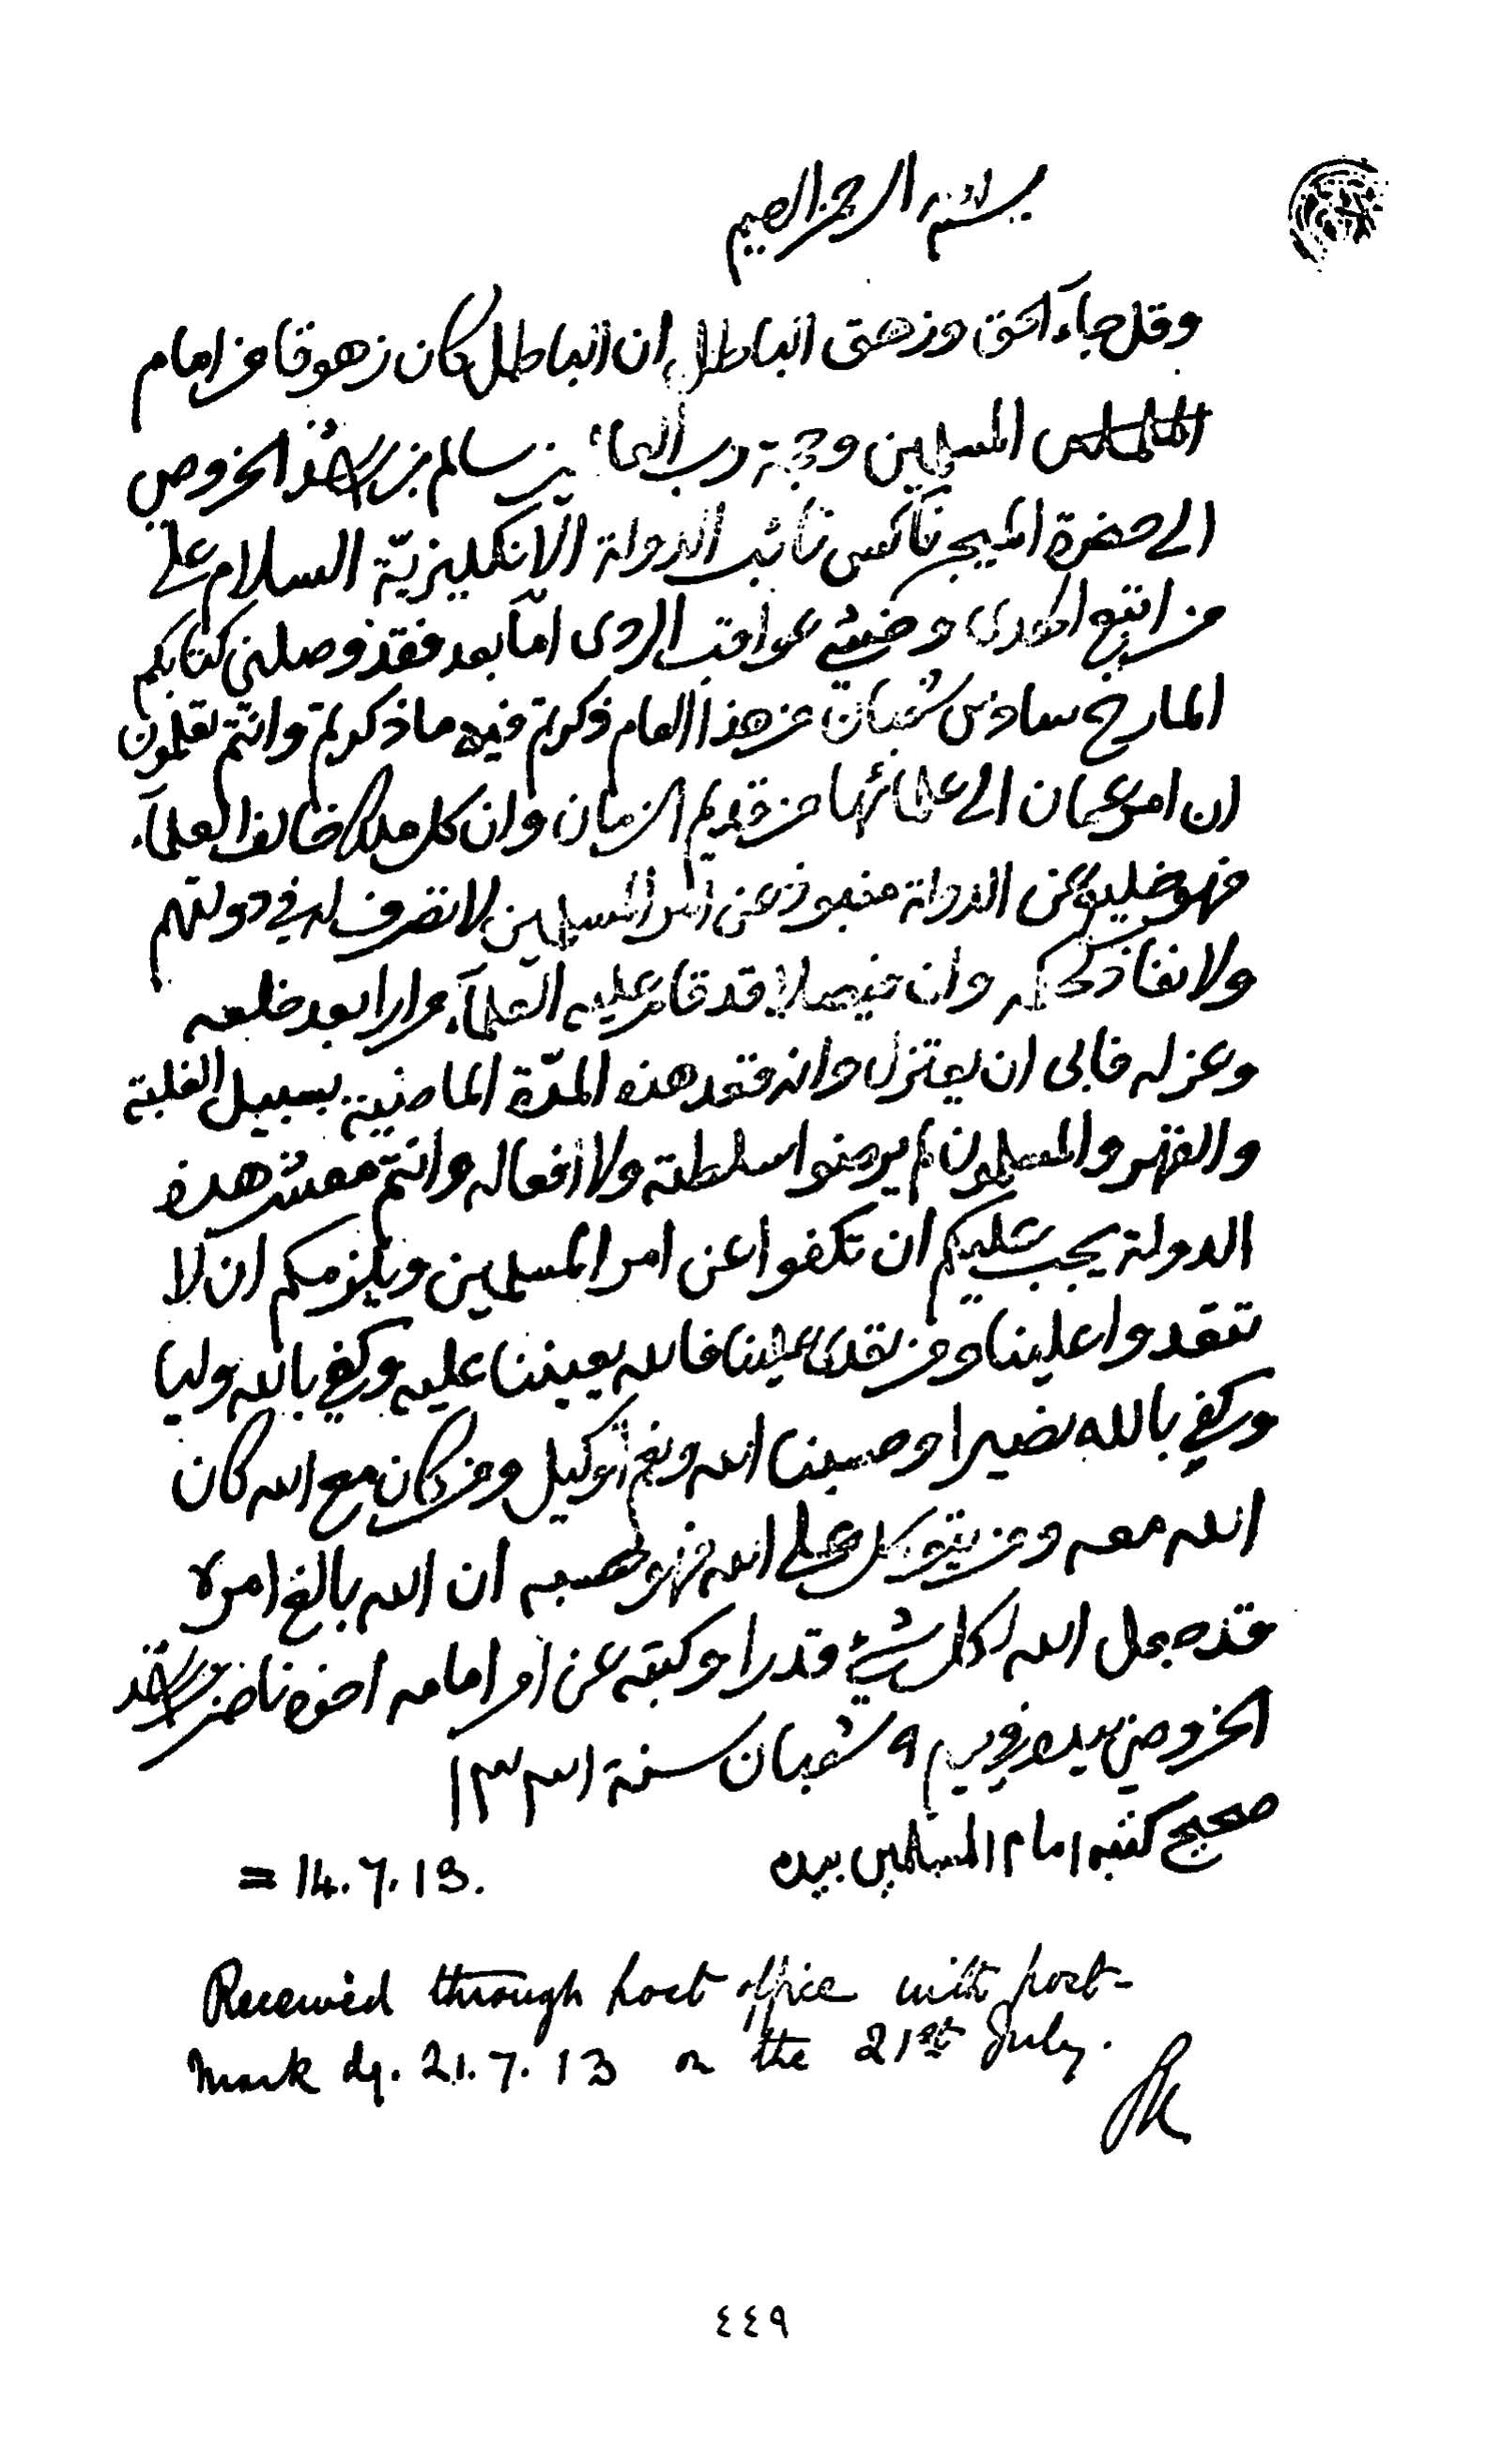 بسم الله الرحمن الرحيم
وقل جاء الحق وزهق الباطل ان الباطل كان زهوقا من امام
المسلمين وحجة رب العالمين سالم بن راشد الخروصي
الى حضرة الميجر ناكس نائب الدولة الانكليزيّة السلام على
من اتبع الهدى وخشي عواقب الردى امّا بعد فقد وصلني كتابكم
المارخ سادس شعبان من هذا العام ذكرتم فيه ما ذكرتم وانتم تعلمون
ان امر عمان الى علمائها من قديم الزمان وان كل ملك خالف العلمآء
فهو خليع عن الدولة منبوذ عن امر المسلمين لا تصرف له في دولتهم
ولا نفاذ لحكمه وان فيصلا قد قام عليه العلمآء مرارا بعد خلعه
وعزله فابى ان يعتزل وانه قعد هذه المدّة الماضية بسبيل الغلبة
والقهر والمسلمون لم يرضوا سلطته ولا افعاله وانتم معشر هذه
الدولة يجب عليكم ان تكفوا عن امر المسلمين ويلزمكم ان لا
تتعدوا علينا ومن تعدى علينا فالله يعيننا عليه وكفى بالله وليا
وكفى بالله نصيرا وحسبنا الله ونعم الوكيل ومن كان مع الله كان
الله معه ومن يتوكل على الله فهو حسبه ان الله بالغ امره
قد جعل الله لكل شيء قدرا وكتبه عن امر امامه اخوه ناصر بن راشد
الخروصي بيده في يوم ٩ شعبان سنة ١٣٣١
صحيح كتبه امام المسلمين بيده
= 14.7.13.
Received through post office with post-
mark dy. 21.7.13 on the 21st July.
٤٤٩